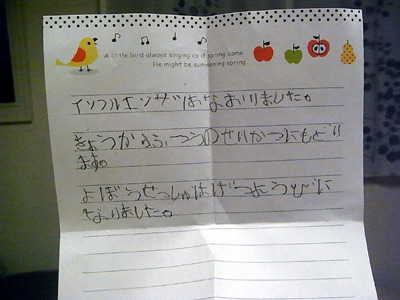 A little bird always singing as if spring came.
He might be summoning spring.
インフルエンザはなおりました。
きょうからふつうのせいかつにもどり
ます。
よぼうせっしゅはげつようびに
なりました。